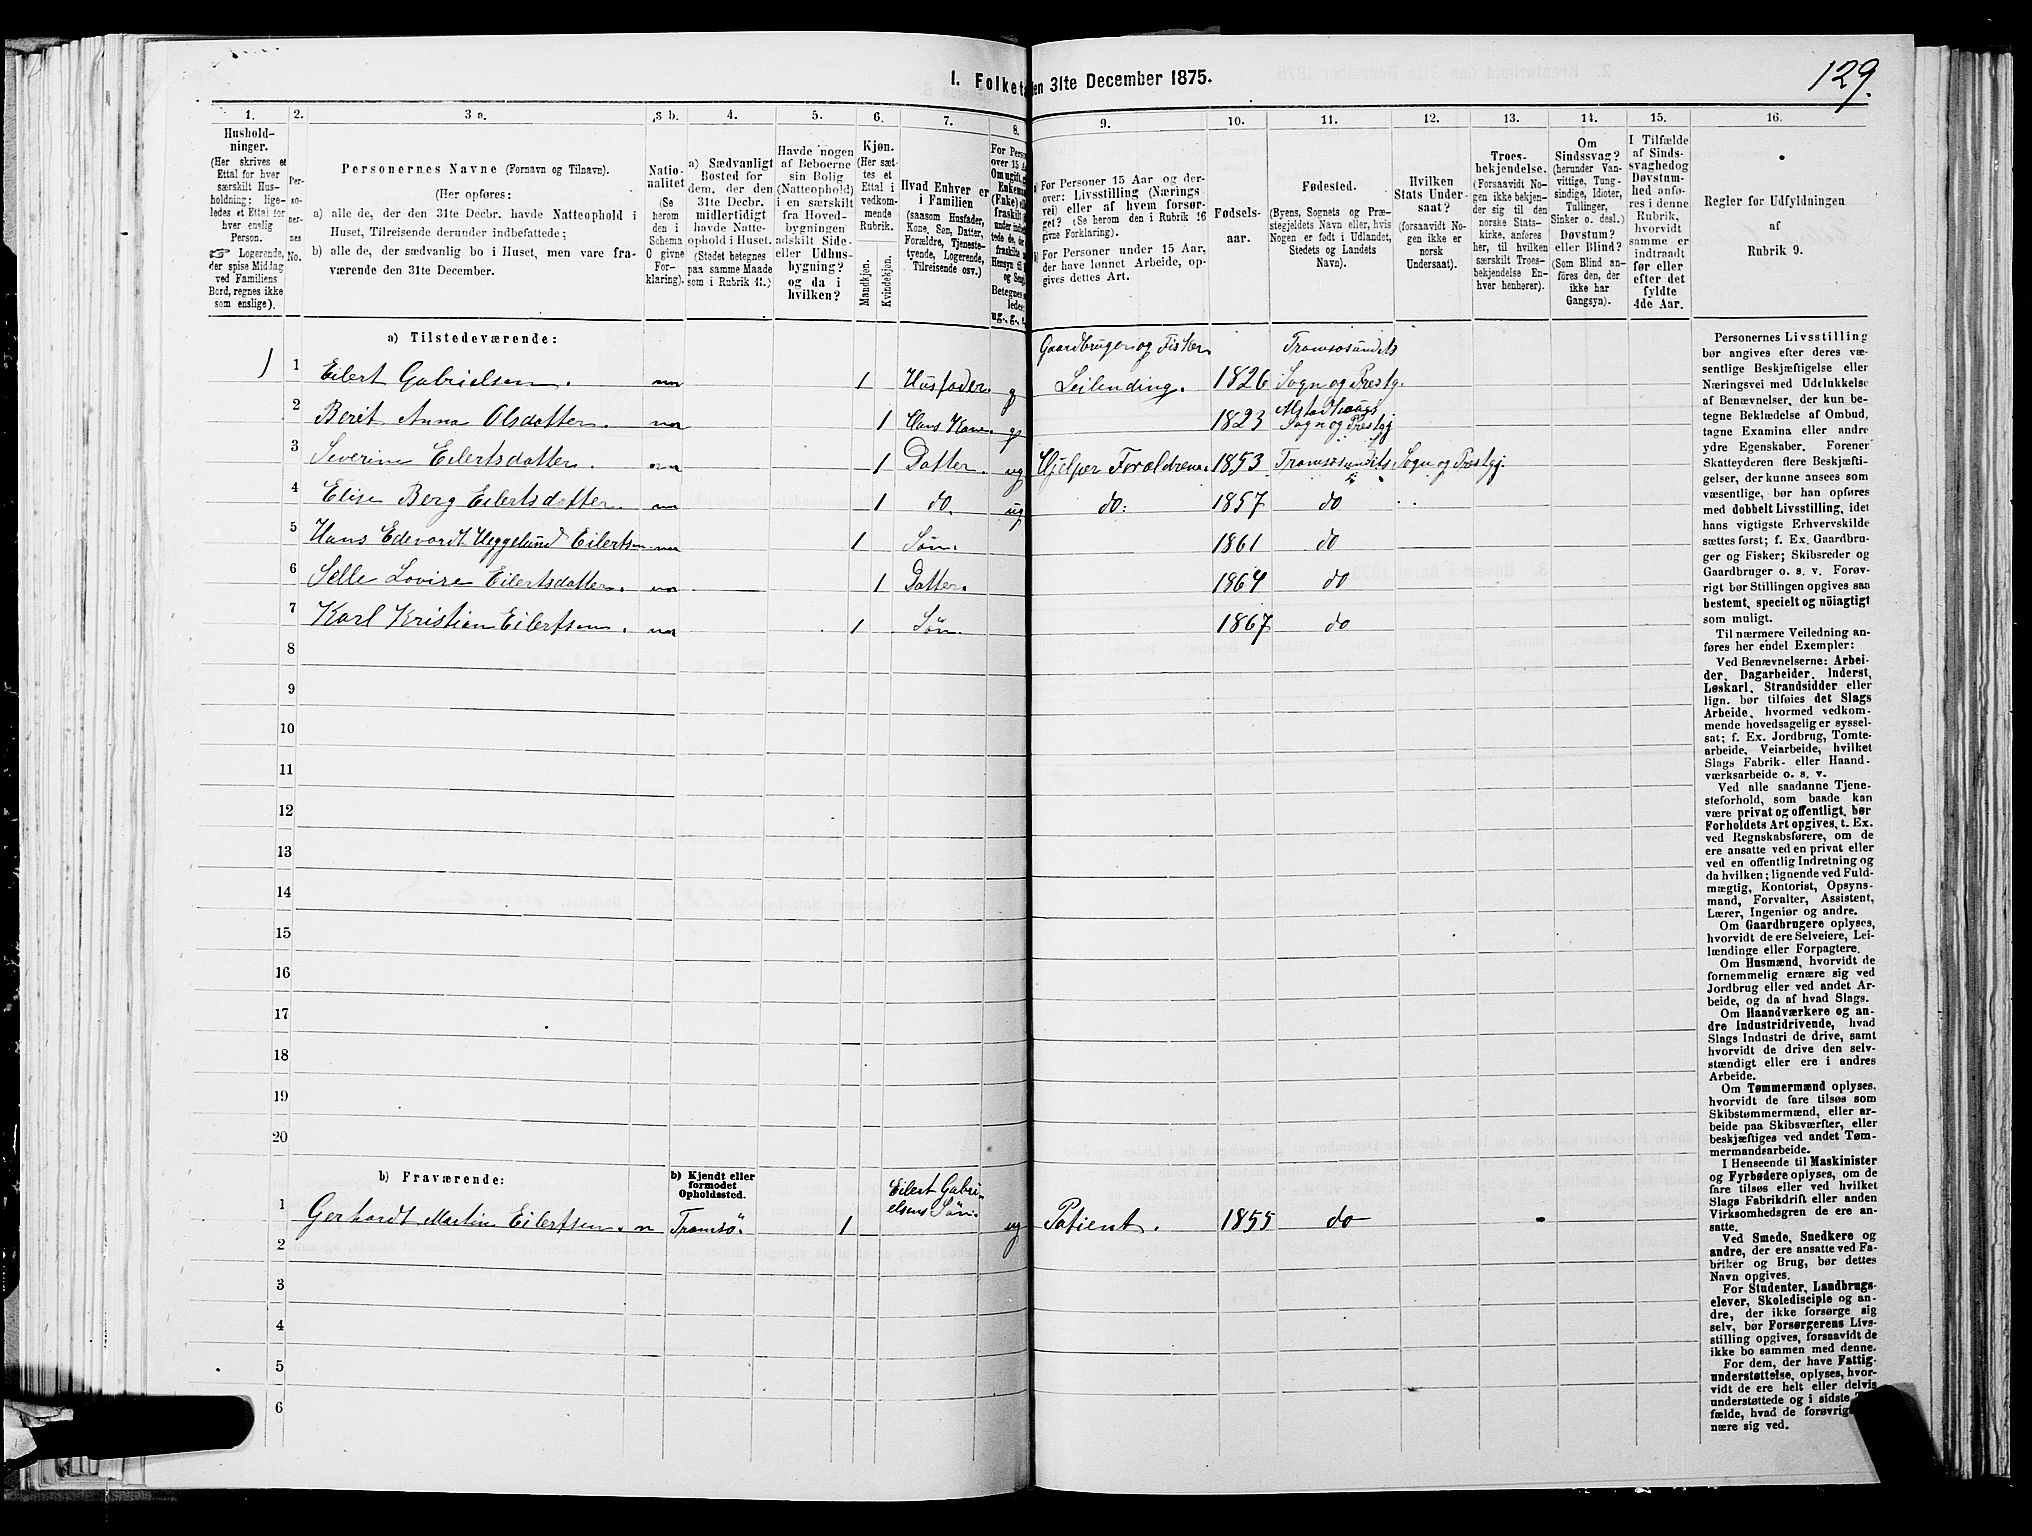 129.
I. Folket
en 31te December 1875.
1. 2. 3 a. 3 b. 4. 5. 6. 7. 8. 9. 10. 11. 12. 13. 14. 15. 16.
Hushold-
ninger.
(Her skrives et
Ettal for hver
særskilt Hus-
holdning; lige-
ledes et Ettal for
hver enslig
Person.
☞ Logerende,
der spise Middag
ved Familiens
Bord, regnes ikke
som enslige).
Per-
so-
ner-
nes
No.
Personernes Navne (Fornavn og Tilnavn).
(Her opføres:
a) alle de, der den 31te Decbr. havde Natteophold i
Huset, Tilreisende derunder indbefattede;
b) alle de, der sædvanlig bo i Huset, men vare fra-
værende den 31te December.
Natio-
nalitet
(Se
herom
den i
Schema
C givne
For-
klaring).
a) Sædvanligt
Bosted for
dem, der den
31te Decbr.
midlertidigt
havde Natte-
ophold i Huset.
(Stedet betegnes
paa samme Maade
som i Rubrik 11.)
Havde nogen
af Beboerne
sin Bolig
(Natteophold)
i en særskilt
fra Hoved-
bygningen
adskilt Side-
eller Udhus-
bygning?
og da i
hvilken?
Kjøn.
(Her sæt-
tes et
Ettal i
vedkom-
mende
Rubrik.
Mandkjøn.
Kvindekjøn.
Hvad Enhver er
i Familien
(saasom Husfader,
Kone, Søn, Datter,
Forældre, Tjeneste-
tyende, Logerende,
Tilreisende osv.)
For Perso
over 15 Aa
Om ugift, g
Enkeman
(Enke) el
fraskilt
a) For Personer 15 Aar og der-
over: Livsstilling (Nærings
vei) eller af hvem forsør-
get? (Se herom den i Rubrik 16
givne Forklaring).
b) For Personer under 15 Aar,
der have lønnet Arbeide, op-
gives dettes Art.
Fødsels-
aar.
Fødested.
(Byens, Sognets og Præ-
stegjeldets Navn eller, hvis
Nogen er født i Udlandet,
Stedets og Landets
Navn).
Hvilken
Stats Under-
saat?
(forsaavidt No-
gen ikke er
norsk
Undersaat).
Troes-
bekjendelse.
(Forsaavidt No-
gen ikke bekjen-
der sig til den
norske Stats-
kirke, anføres
her, til hvilken
særskilt Troes-
bekjendelse En-
hver henhører).
Om
Sindssvag?
(herunder Van-
vittige, Tung-
sindige, Idioter,
Tullinger,
Sinker o. desl.)
Døvstum?
eller Blind?
(Som Blind anfø-
res den, der
ikke har
Gangsyn).
I Tilfælde
af Sinds-
svaghed og
Døvstum-
hed anfø-
res i denne
Rubrik,
hvorvidt
samme er
indtraadt
før eller
efter det
fyldte
4de Aar.
Regler for Udfyldningen
af
Rubrik 9.
a) Tilstedeværende:
Gaardbruger og Fisker Tromsosundets
1 1 Eilert Gabrielsen. no 1 Husfader. g Leilending. 1826 Sogn og Prestg.
Alstadhaugs
2 Berit Anna Olsdatter. no 1 Hans Kone. g 1823 Sogn og Prestgj
3 Severine Eilertsdatter. no 1 Datter. ug Hjelper Forældrene. 1853 Tromsosundets Sogn og Prestgj.
4 Elise Berg Eilertsdatter. no 1 do. ug do: 1857 do
5 Hans Edevardt Heggelund Eilertsen no 1 Søn. 1861 do
6 Selle Lovise Eilertsdatter. no 1 Datter. 1864 do
7 Karl Kristian Eilertsen. no 1 Søn. 1867 do
8
9
10
11
12
13
14
15
16
17
18
19
20
b) Fraværende:
b) Kjendt eller
formodet
Opholdssted.
Eilert Gabri-
elsens Søn.
1 Gerhardt Martin Eilertsen. n Tromsö. 1 ug Patient. 1855 do
2
3
4
5
6
Personernes Livsstilling
bør angives efter deres væ-
sentlige Beskjæftigelse eller
Næringsvei med Udelukkelse
af Benævnelser, der kun be-
tegne Beklædelse af Ombud,
tagne Examina eller andre
ydre Egenskaber. Forener
Skatteyderen flere Beskjæfti-
gelser, der kunne ansees som
væsentlige, bør han opføres
med dobbelt Livsstilling, idet
hans vigtigste Erhvervskilde
sættes først; f. Ex. Gaardbru-
ger og Fisker; Skibsreder og
Gaardbruger o. s. v. Forøv-
rigt bør Stillingen opgives saa
bestemt, specielt og nöiagtigt
som muligt.
Til nærmere Veiledning an-
føres her endel Exempler:
Ved Benævnelserne: Arbei-
der, Dagarbeider, Inderst,
Løskarl, Strandsidder eller
lign. bør tilføies det Slags
Arbeide, hvormed vedkom-
mende hovedsagelig er syssel-
sat; f. Ex. Jordbrug, Tomte-
arbeide, Veiarbeide, hvilket
Slags Fabrik- eller Haand-
værksarbeide o. s. v.
Ved alle saadanne Tjene-
steforhold, som baade kan
være privat og offentligt, bør
Forholdets Art opgives, t. Ex.
ved Regnskabsførere, om de
ere ansatte ved en privat eller
ved en offentlig Indretning og
da hvilken; lignende ved Fuld-
mægtig, Kontorist, Opsyns-
mand, Forvalter, Assistent,
Lærer, Ingeniør og andre.
Om Gaardbrugere oplyses,
hvorvidt de ere Selveiere, Lei-
lændinge eller Forpagtere.
Om Husmænd, hvorvidt de
fornemmelig ernære sig ved
Jordbrug eller ved andet Ar-
beide, og da af hvad Slags.
Om Haandværkere og an-
dre Industridrivende, hvad
Slags Industri de drive, samt
hvorvidt de drive den selv-
stændigt eller ere i andres
Arbeide.
Om Tømmermænd oplyses,
hvorvidt de fare tilsøs som
Skibstømmermænd, eller ar-
beide paa Skibsværfter, eller
beskjæftiges ved andet Tøm-
mermandsarbeide.
I Henseende til Maskinister
og Fyrbødere oplyses, om de
fare tilsøs eller ved hvilket
Slags Fabrikdrift eller anden
Virksomhedsgren de ere an-
satte.
Ved Smede, Snedkere og
andre, der ere ansatte ved Fa-
briker og Brug, bør dettes
Navn opgives.
For Studenter, Landbrugs-
elever, Skoledisciple og an-
dre, der ikke forsørge sig
selv, bør Forsørgerens Livs-
stilling opgives, forsaavidt de
ikke bo sammen med denne.
For dem, der have Fattig-
understøttelse, oplyses, hvor-
vidt de ere helt eller delvis
understøttede og i sidste
fælde, hvad de forøvrig
nære sig ved.